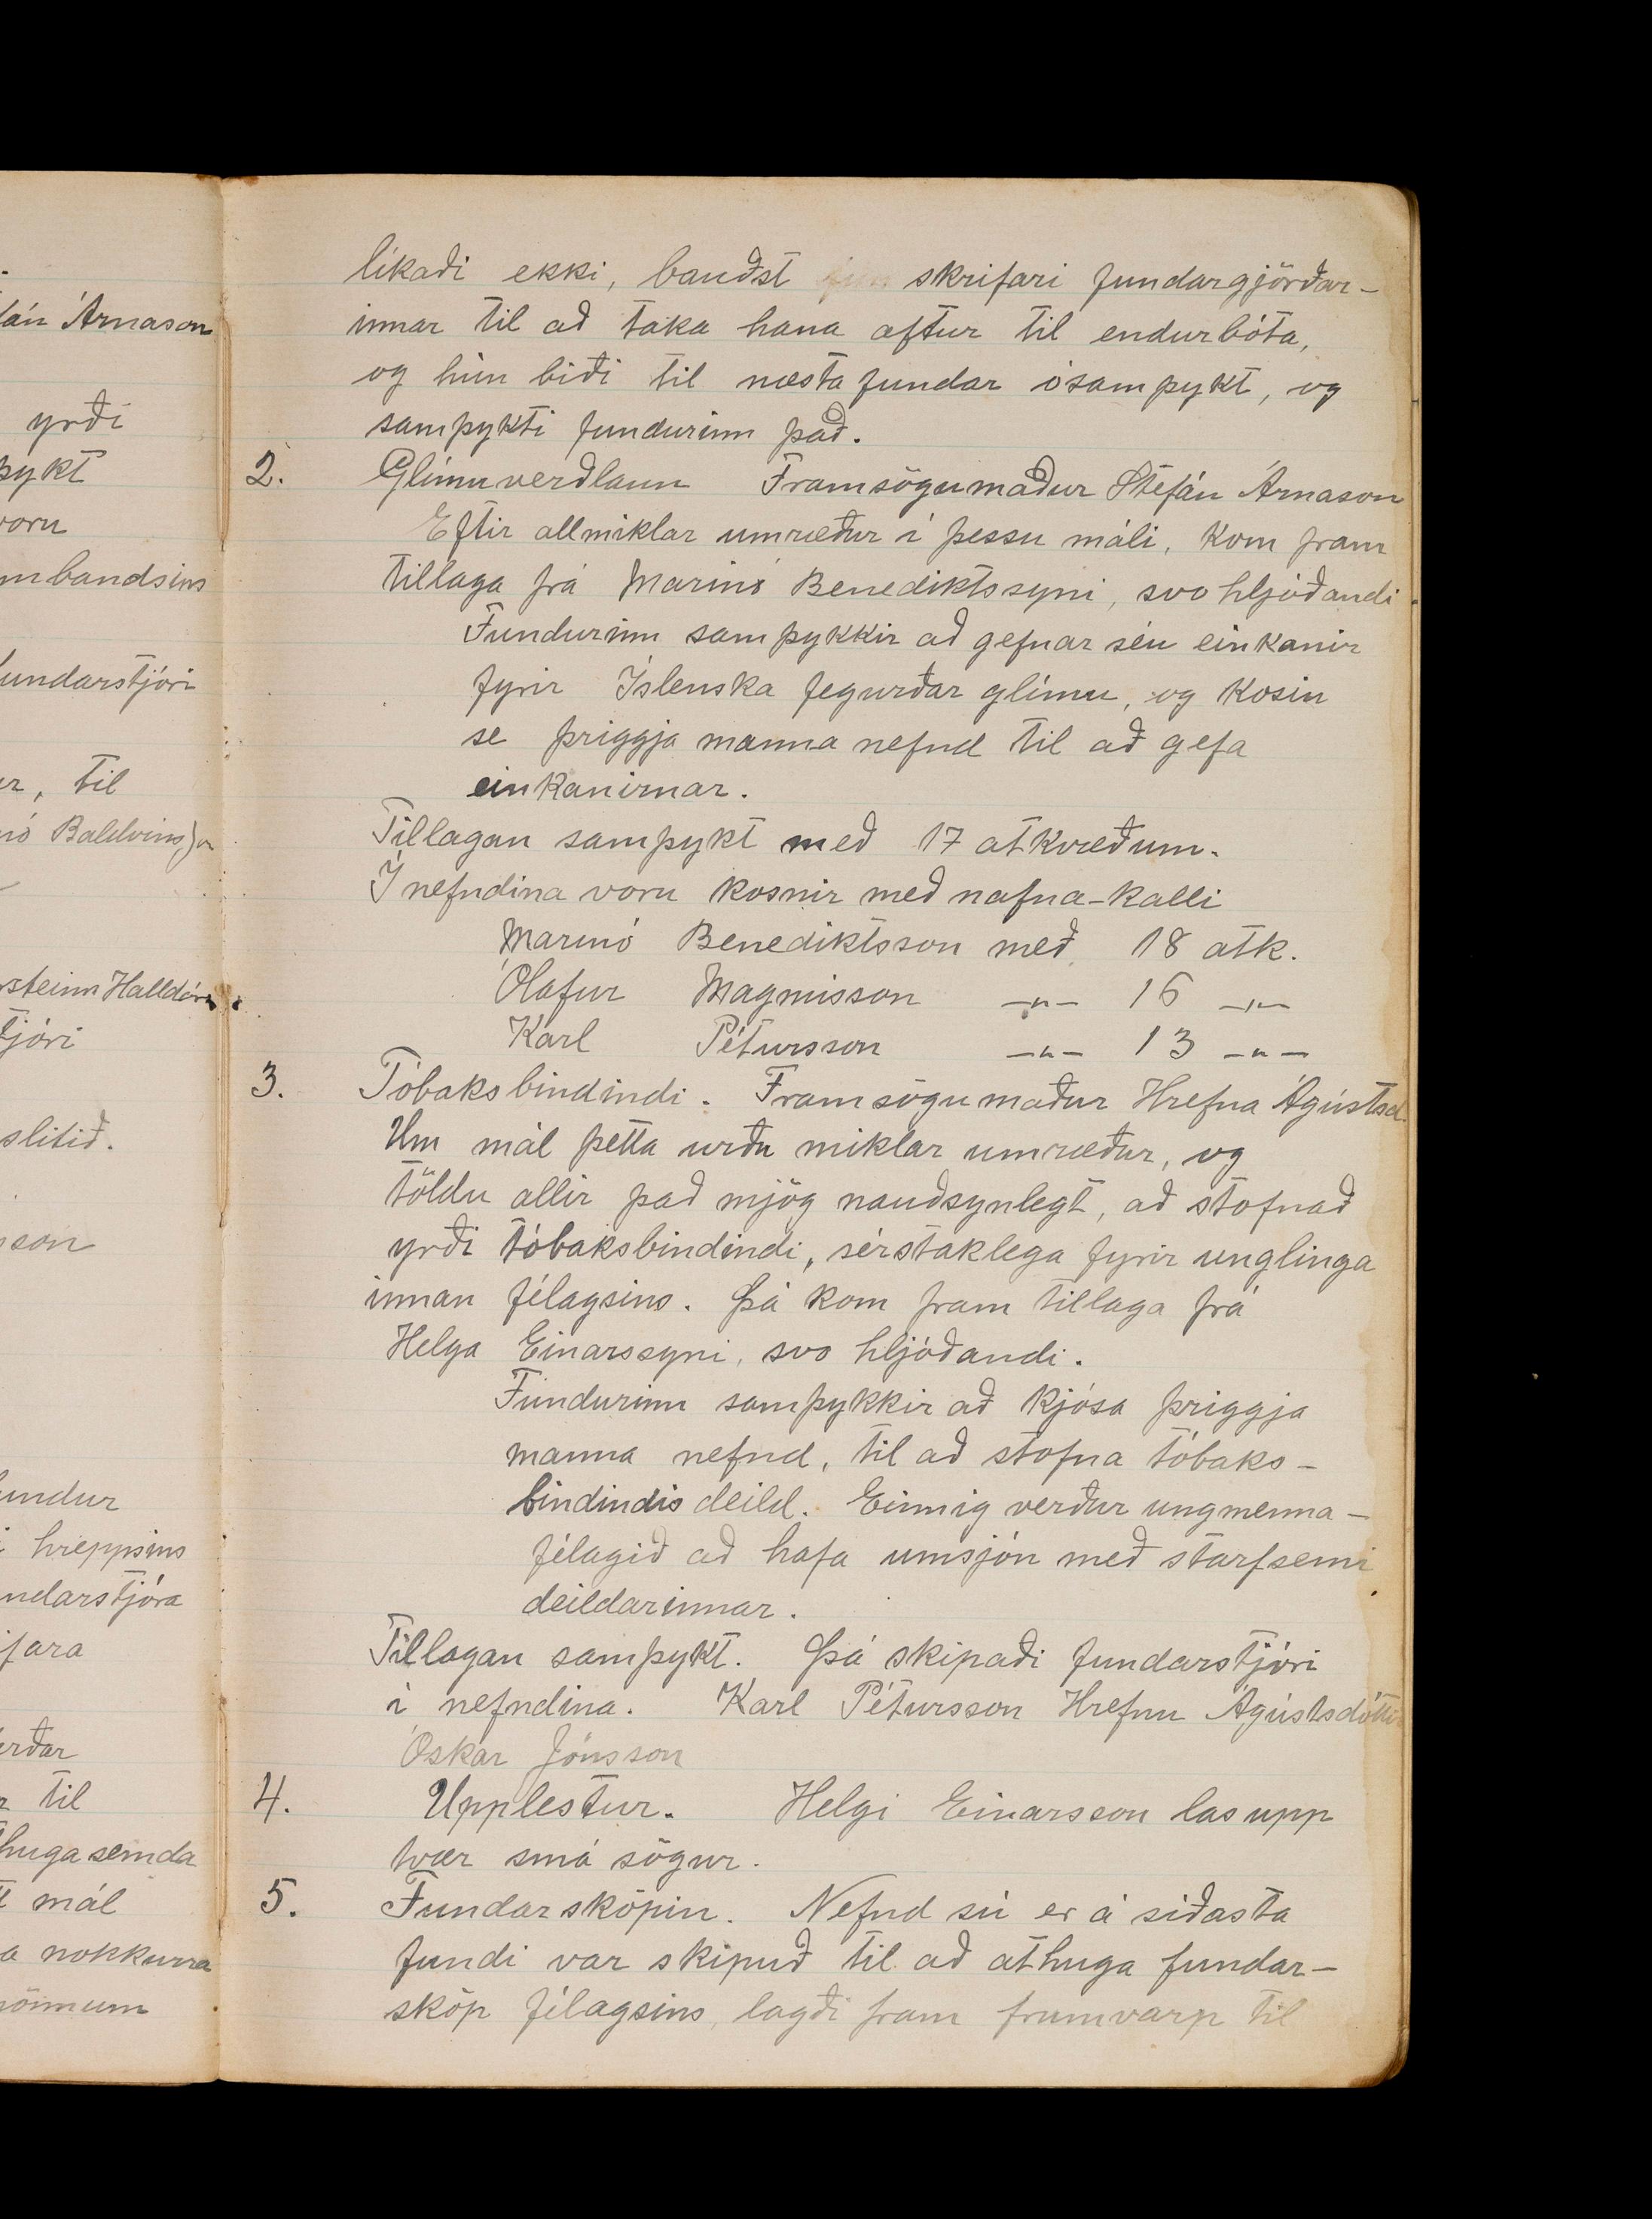 lán Árnason
yrði
þykt
voru
mbandsins
undarstjóri
ur, til
nó Baldvinss
rsteinn Halldórs
tjóri
slitið.
sson
undur
hreppsins
ndarstjóra
ifara
erðar
r til
huga semda
mál
a nokkurra
mönnum
líkaði ekki, bauðst skrifari fundargjörðar-
innar til að taka hana aftur til endurbóta,
og hún biði til næsta fundar ósamþykt, og
samþykti fundurinn það.
2. Glímuverðlaun Framsögumaður Stefán Árnason
Eftir allmiklar umræður í þessu máli, kom fram
tillaga frá Marinó Benediktssyni, svo hljóðandi.
Fundurinn samþykkir að gefnar séu einkanir
fyrir Íslenska fegurðar glímu, og kosin
se þriggja manna nefnd til að gefa
einkanirnar.
Tillagan samþykt með 17 atkvæðum.
Í nefndina voru kosnir með nafna-kalli
Marinó Benediktsson með 18 atk.
Ólafur Magnússon -"- 16 -"-
Karl Pétursson -"- 13 -"-
3. Tóbaksbindindi. Framsögumaður Hrefna Ágústsd.
Um mál þetta urðu miklar umræður, og
töldu allir það mjög nauðsynlegt, að stofnað
yrði tóbaksbindindi, sérstaklega fyrir unglinga
innan félagsins. Þá kom fram tillaga frá
Helga Einarssyni, svo hljóðandi.
Fundurinn samþykkir að kjósa þriggja
manna nefnd, til að stofna tóbaks-
bindindis deild. Einnig verður ungmenna-
félagið að hafa umsjón með starfsemi
deildarinnar.
Tillagan samþykt. Þá skipaði fundarstjóri
í nefndina. Karl Pétursson Hrefnu Ágústsdóttir
Óskar Jónsson
4. Upplestur. Helgi Einarsson las upp
tvær smá sögur.
5. Fundarsköpin. Nefnd sú er á síðasta
fundi var skipuð til að athuga fundar-
sköp félagsins, lagði fram frumvarp til